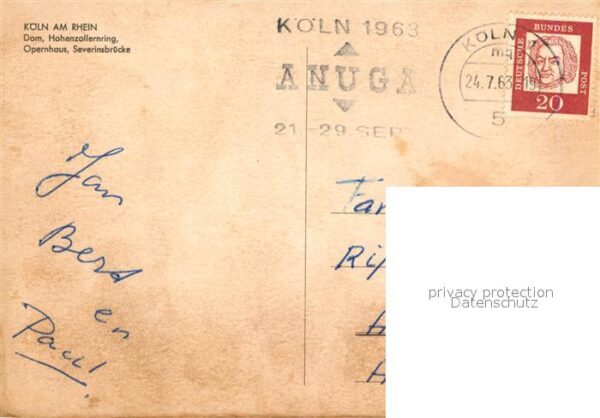 KÖLN AM RHEIN
Dom, Hohenzollernring,
Opernhaus, Severinsbrücke
KÖLN 1963
ANUGA
21-29 SEPT
KÖLN 1
mq
24.7.63-19
5
DEUTSCHE BUNDES POST
20
Jan
Berd
en
Paul
Fam
privacy protection
Datenschutz